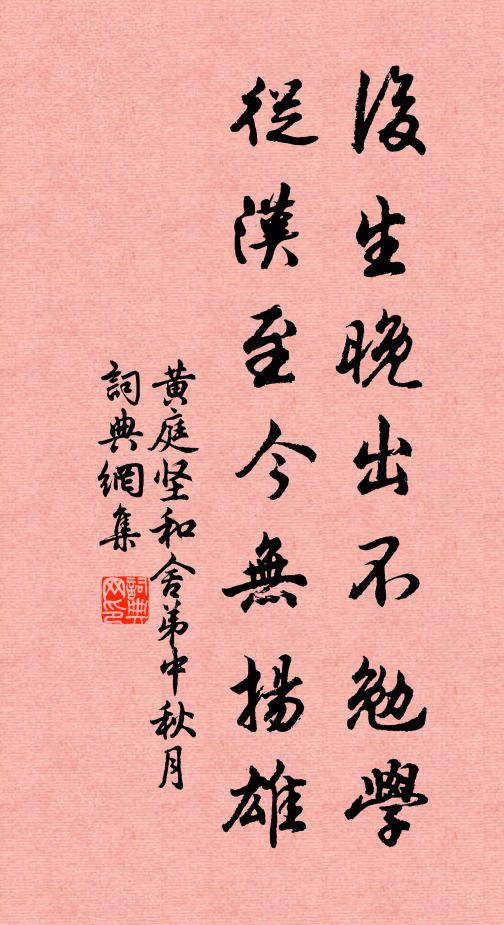 後生晚出不勉學
從漢至今無揚雄
黄庭坚和舍弟中秋月
詞典網集
詞典网印